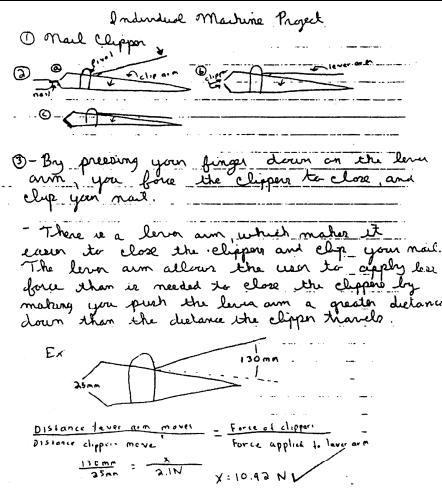 Individual Machine Project
① Nail Clipper
② ⓐ pivot clip arm nail
ⓑ lever arm clipper
ⓒ
③ - By pressing your finger down on the lever
arm, you force the clippers to close, and
clip your nail.
- There is a lever arm, which makes it
easier to close the clippers and clip your nail.
The lever arm allows the user to apply less
force than is needed to close the clippers by
making you push the lever arm a greater distance
down than the distance the clipper travels.
Ex
130mm
25mm
Distance lever arm moves = Force of clippers
Distance clippers move Force applied to lever arm
130mm = x
25mm 2.1N
x = 10.92 N